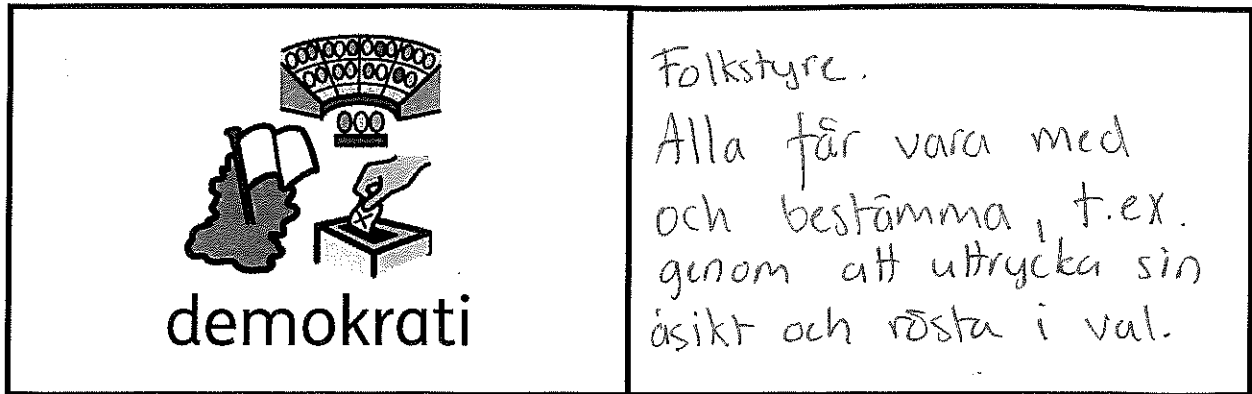 demokrati
Folkstyre.
Alla får vara med
och bestämma, t.ex.
genom att uttrycka sin
åsikt och rösta i val.